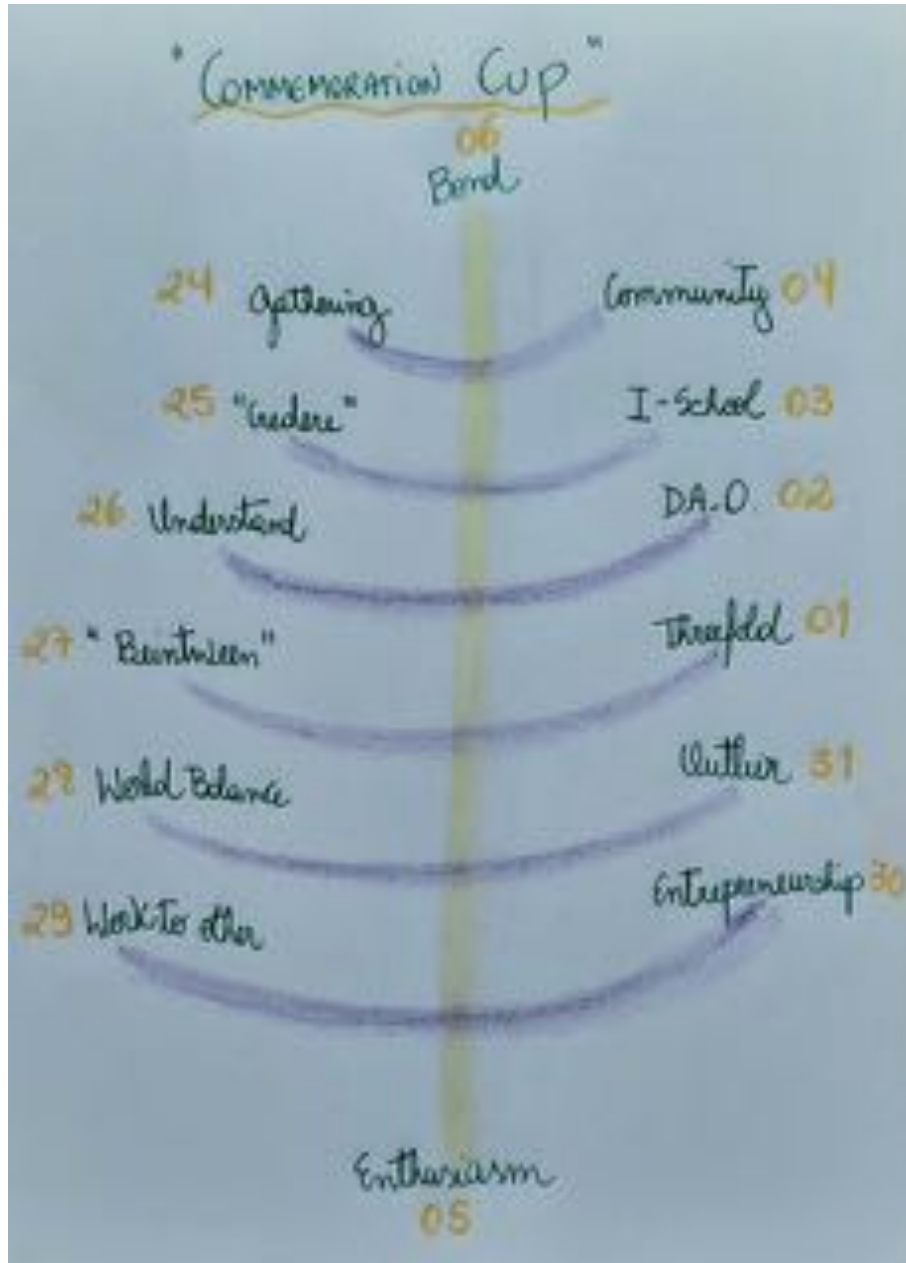 "Commemoration Cup"
06
Bond
24 Gathering Community 04
25 "Credere" I-School 03
26 Understand D.A.O. 02
27 "Beintween" Threefold 01
28 World Balance Outlier 31
29 Work to other Entrepreneurship 30
Enthusiasm
05